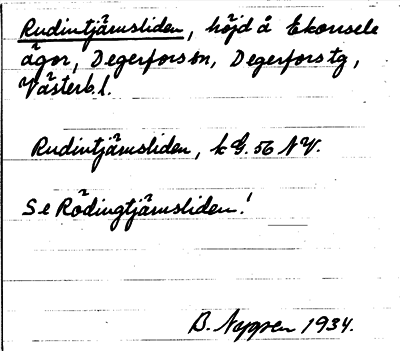 Rudintjärnsliden, höjd å Ekonsele
ägor, Degerfors sn, Degerfors tg,
Västerb. l.
Rudintjärnsliden, k G. 56 NV.
Se Rödingtjärnsliden!
B. Nygren 1934.